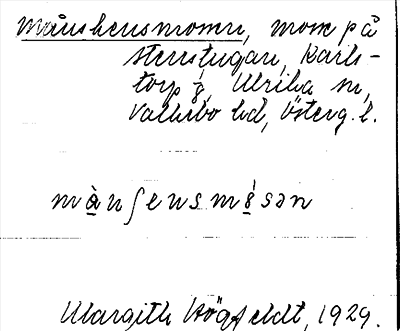 månskensmomn, mom på
stenstugan, Karls-
torp ⅛, Ulrika sn,
Valkebo hd, Österg. l.
mànʃensmósən
Margith Högfeldt, 1929.